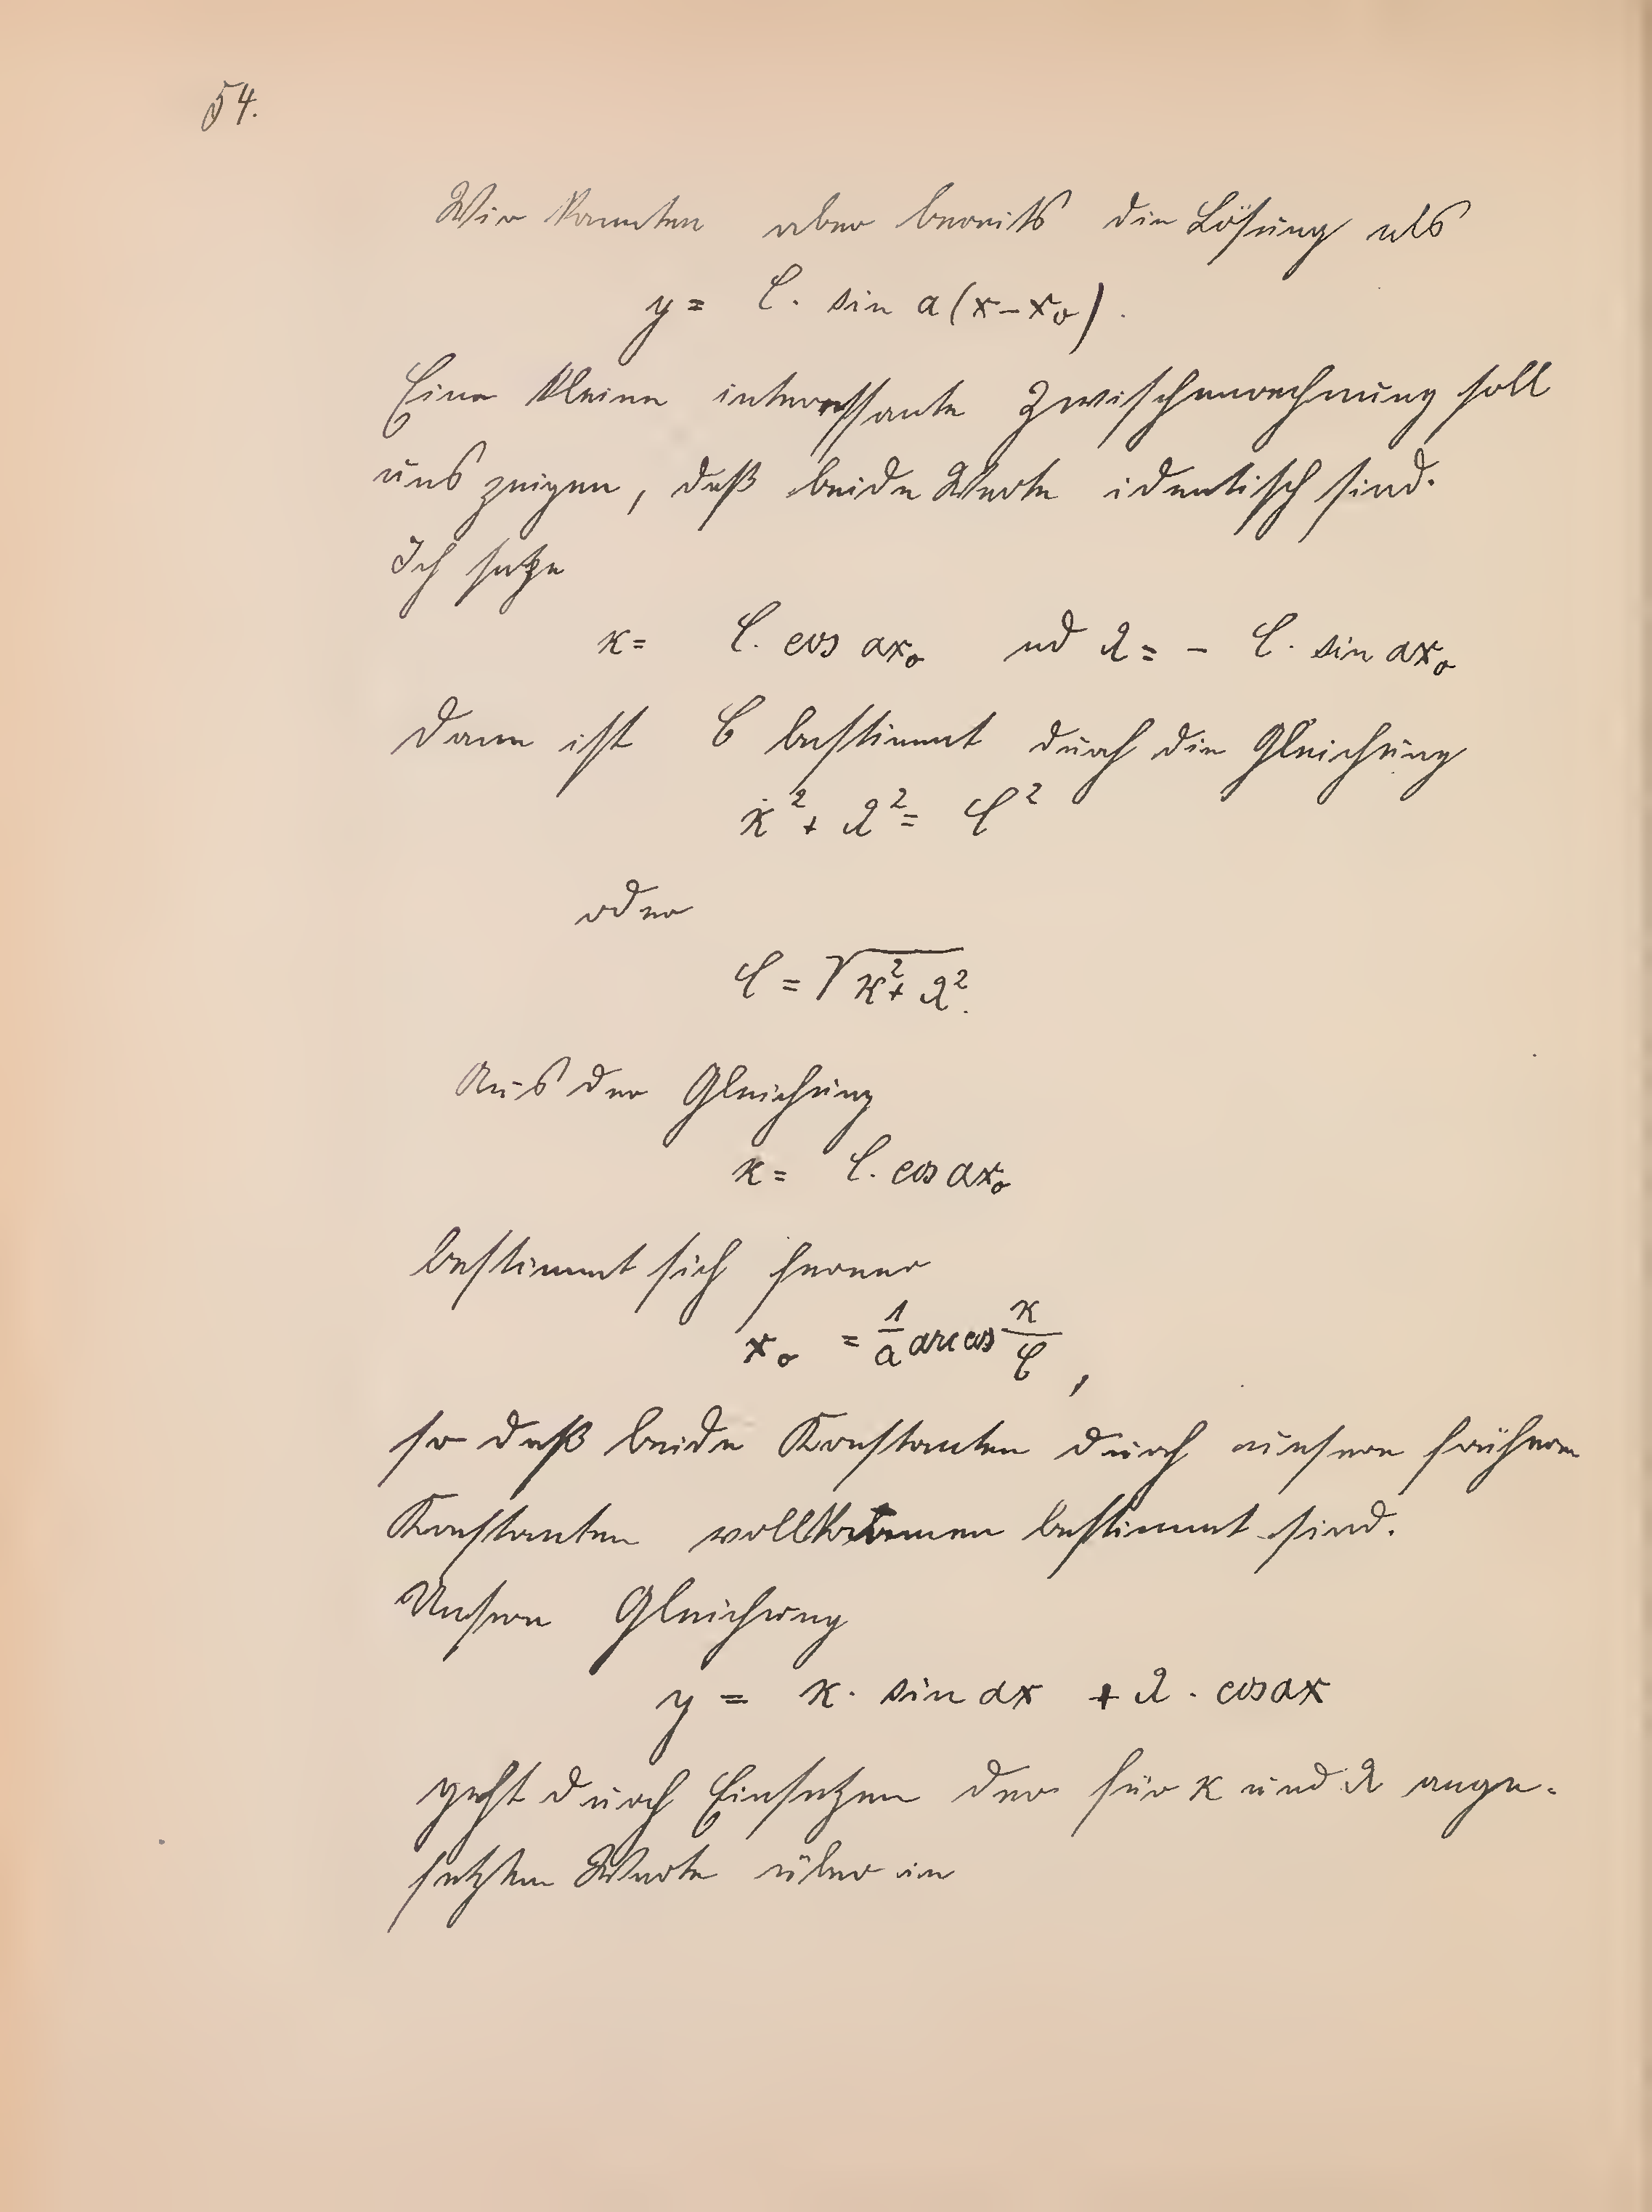 54.
Wir kannten aber bereits die Lösung als
y = C. sin a(x-x₀).
Eine kleine interessante Zwischenrechnung soll
uns zeigen, daß beide Werte identisch sind.
Ich setze
κ = C. cos ax₀ nd λ = - C. sin ax₀
Dann ist C bestimmt durch die Gleichung
κ² + λ² = C²
oder
C = √κ² + λ².
Aus der Gleichung
κ = C. cos ax₀
bestimmt sich ferner
x₀ = 1/a arc cos κ/C,
so daß beide Konstanten durch unsere früheren
Konstanten vollkommen bestimmt sind.
Unsere Gleichung
y = κ. sin ax + λ. cos ax
geht durch Einsetzen der für κ und λ ange-
setzten Werte über in